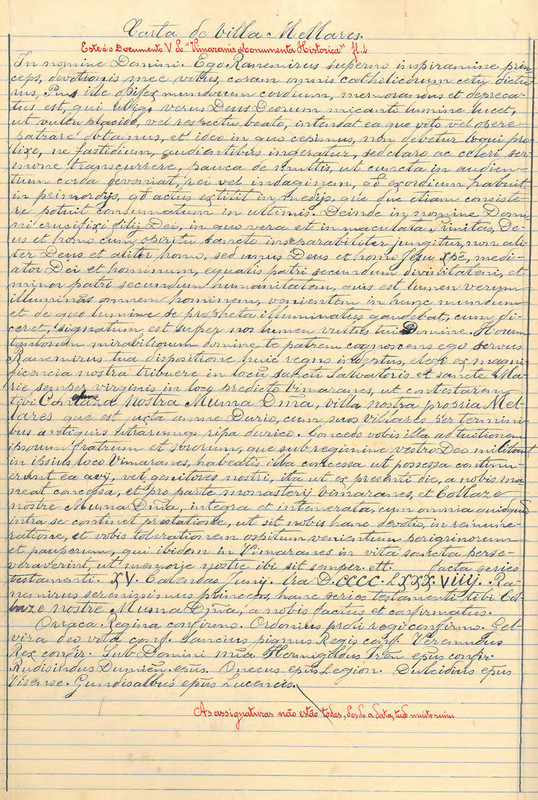 Carta de Villa Mellares.
Este é o Documento V de "Vimaranis Monumenta Historica" fl. 4
In nomine Domini. Ego Ranemirus superno inspiramine prin
ceps, devotionis mee votis, coram omnis catholicorum cetu dictu
rus, Pius ille opifex mundorum cordium, memorandus et depreca
tus est, qui ubiqi verus Deus Deorum micanti lumine lucet,
ut vultu placido, vel respectu beato, intendat ea que vite vel opere
patrare obtamus, et ideo in quo cepimus, non debetur loqui pro
lixe, ne fastidium, audientibus inseratur, sed claro ac celeri ser
mone transcurrere, pauca de multis, ut cuncta in audien
tium corda perveniat, rei vel indaginem, qd exordium habuit
in primordys, qd actus extitit in medys, que due etiam consiste
re potuit consumatum in ultimis. Deinde in nomine Dom
ni crucifixi filij Dei, in quo vera et inmaculata Trinitas, De
us et homo cum spiritu sancto inseparabiliter jungitur, non ali
ter Deus et aliter homo, sed unus Deus et homo Jesu xpe, medi
ator Dei et hominum, equalis patri secundum divinitatem, et
minor patri secundum humanitatem, quis est lumen verum
illuminas omnem hominem, venientem in hunc mundum
et de quo lumine se propheta illuminatus gaudebat, cum di
ceret, signatum est super nos lumen vultus tui Domine. Horum
tantorum mirabiliorum domine te patrem cognoscens ego servus
Ranemirus tua dispositione huic regno indeptus, elegi ex magni
ficencia nostra tribuere in locũ sancti Salvatoris et sancte Ma
rie semper virginis in loco predicto Vimaranes, ut contestarem
tivi Conlaza nostra Muma Dña, villa nostra propria Mel
lares que est juxta amne Durio, cum suos villares per termini
bus antiquis utrarumqi ripa durico. Concedo vobis illa ad tuitionem
ipsorum fratrum et sororum, que sub regimine vestro Deo militant
in ipsius loco Vimaranes, habeatis illa concessa ut possessa continu
erunt ea avij, vel genitores nostri, ita ut ex presenti die, a nobis ma
neat concessa, et pro parte monasterij vimaranes, et Collaze
nostre Muma Dña, integra et intemerata, cum omnia quidquid
intra se continet prestatione, ut sit nobis hanc devotio, in remune
ratione, et vobis tolerationem ospitum venientum peregrinorum
et pauperum, qui ibidem in Vimaranes in vita sancta perse
veraverint, ut memorie nostre ibi sit semper. ett. Facta series
testamenti. XV. Calendas Junij. Era D.CCCC.LXXXVIIIJ. Ra
nemirus serenissimus princeps, hanc series testamenti tibi Col
laze nostre Muma Dña, a nobis factus et confirmatus.
Orraca Regina confirmo. Ordonius prolis regi confirmo. Gel
vira deo vota conf. Sancius pignus Regis conf. Veremudus
Rex confir. Sub Domini mãa Hermigildus Iren epũs confir.
Rudisindus Dumien epũs. Onecus epũs Legion. Dulcidius epũs
Visense. Gundisalbus epũs Lucencis.
As assignaturas não estão todas, desde a data, tudo muito ruim